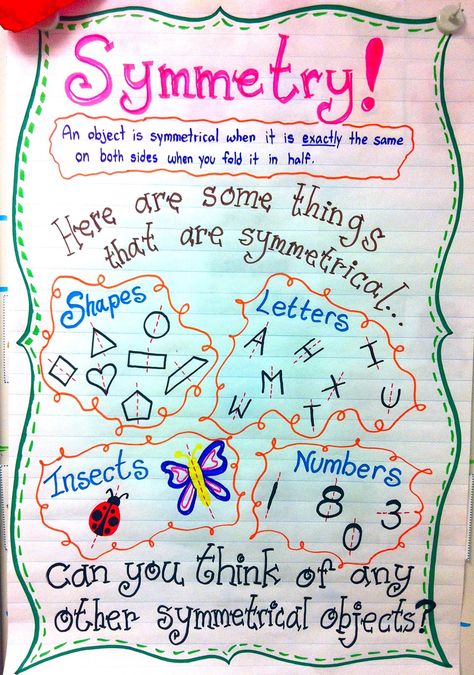 Symmetry!
An object is symmetrical when it is exactly the same
on both sides when you fold it in half.
Here are some things
that are symmetrical...
Shapes
Letters
A H I
M X U
W T
Insects
Numbers
1 8 0 3
Can you think of any
other symmetrical objects?